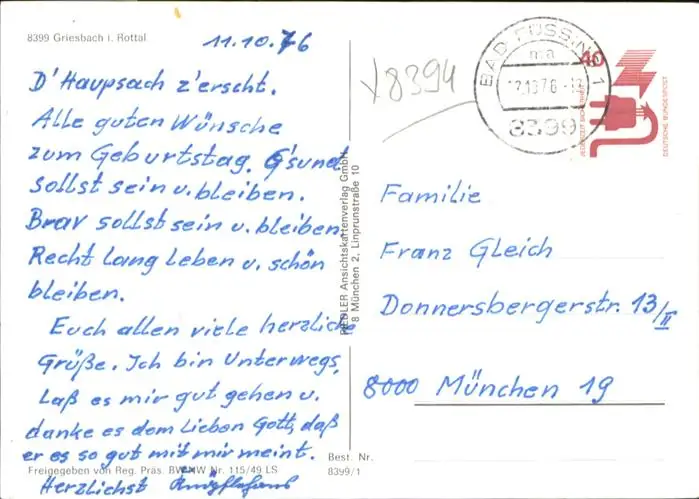 8399 Griesbach i. Rottal
11.10.76
D'Haupsach z'erscht.
Alle guten Wünsche
zum Geburtstag. G'sund
sollst sein u. bleiben.
Brav sollst sein u. bleiben
Recht lang leben u. schön
bleiben.
Euch allen viele herzliche
Grüße. Ich bin Unterwegs,
Laß es mir gut gehen u.
danke es dem Lieben Gott, daß
er es so gut mit mir meint.
Freigegeben von Reg. Präs. Nr. 115/49 LS
Herzlichst
Ansichtskartenverlag GmbH
8 München 2, Linprunstraße 10
Best. Nr.
8399/1
8394
BAD FÜSSING 1
8399
40
JEDERZEIT SICHERHEIT
DEUTSCHE BUNDESPOST
Familie
Franz Gleich
Donnersbergerstr. 13/II
8000 München 19